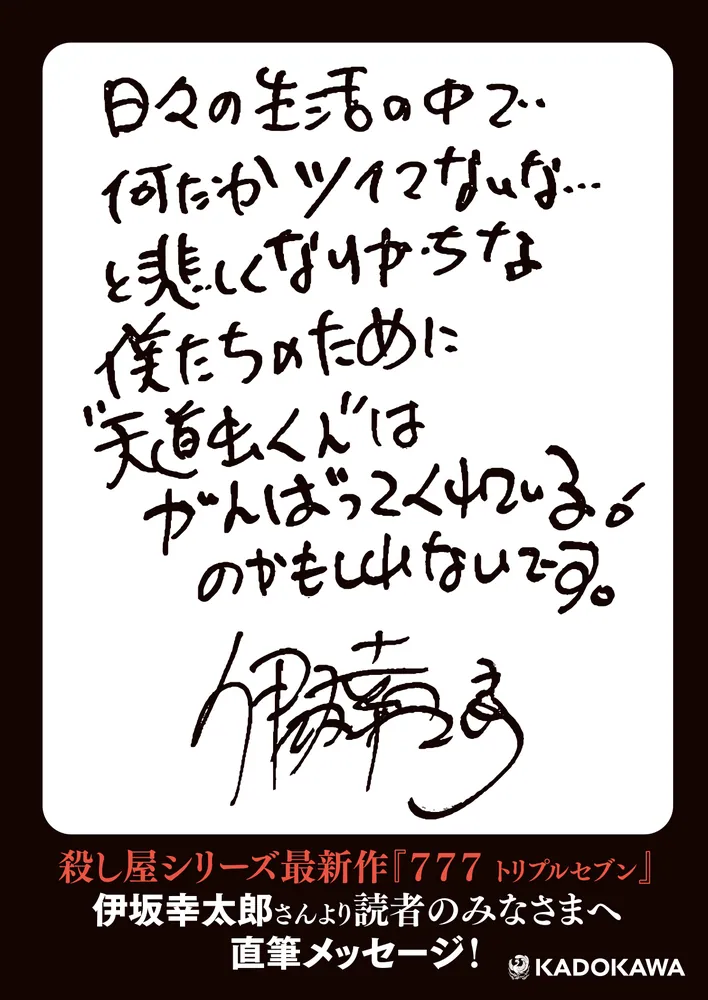 日々の生活の中で、
何だかツイてないな…
と悲しくなりがちな
僕たちのために
"天道虫くん"は
がんばってくれている!
のかもしれないです。
伊坂幸太郎
殺し屋シリーズ最新作『777 トリプルセブン』
伊坂幸太郎さんより読者のみなさまへ
直筆メッセージ!
KADOKAWA